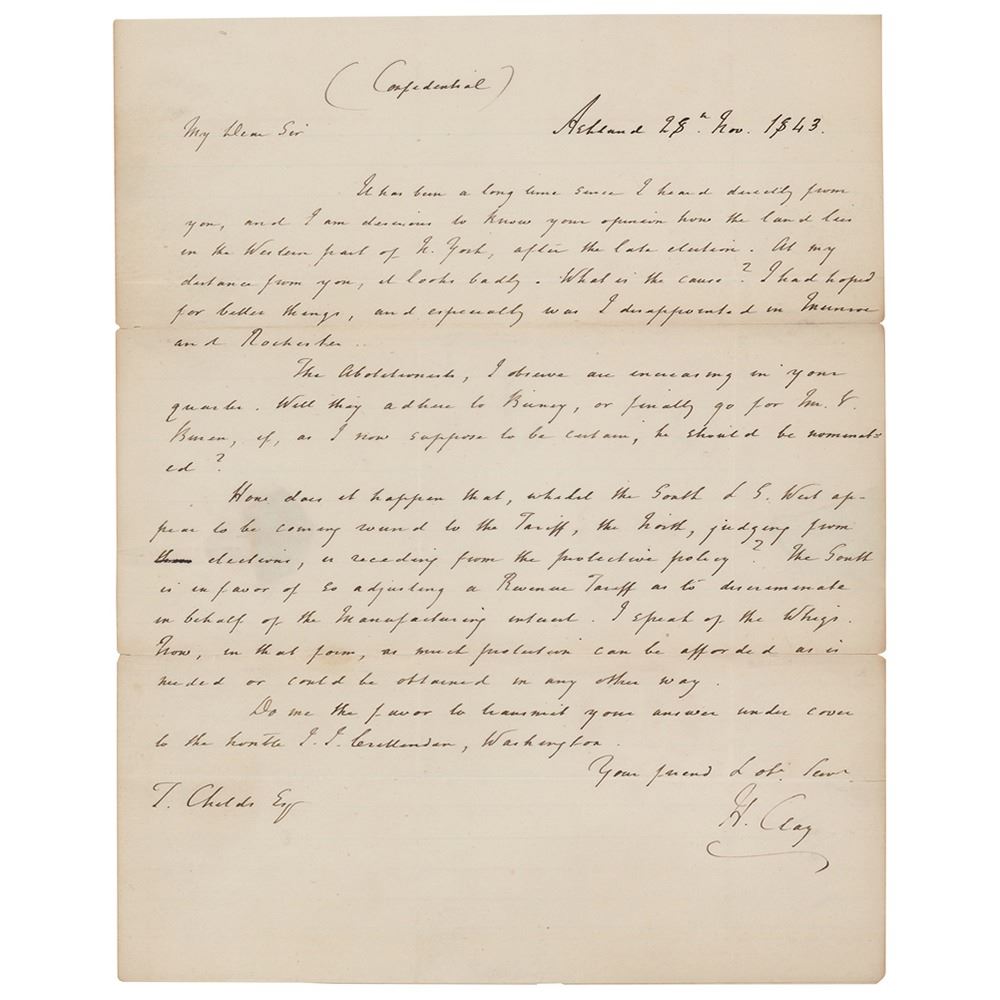 (Confidential)
Ashland 28h. Nov. 1843.
My Dear Sir
It has been a long time since I heard directly from
you, and I am desirous to know your opinion how the land lies
in the Western part of N. York, after the late election. At my
distance from you, it looks badly. What is the cause? I had hoped
for better things, and especially was I disappointed in Munroe
and Rochester.
The Abolitionists, I observe are increasing in your
quarter. Will they adhere to Birney, or finally go for Mr. V.
Buren, if, as I now suppose to be certain, he should be nominat=
ed?
How does it happen that, whilst the South & S. West ap-
pear to be coming round to the Tariff, the North, judging from
elections, is receding from the protective policy? The South
is in favor of so adjusting a Revenue Tariff as to discriminate
in behalf of the Manufacturing interest. I speak of the Whigs.
Now, in that form, as much protection can be afforded as is
needed or could be obtained in any other way.
Do me the favor to transmit your answer under cover
to the honble J. J. Crittenden, Washington.
Your friend & obt. Servt.
H. Clay
T. Childs Esq